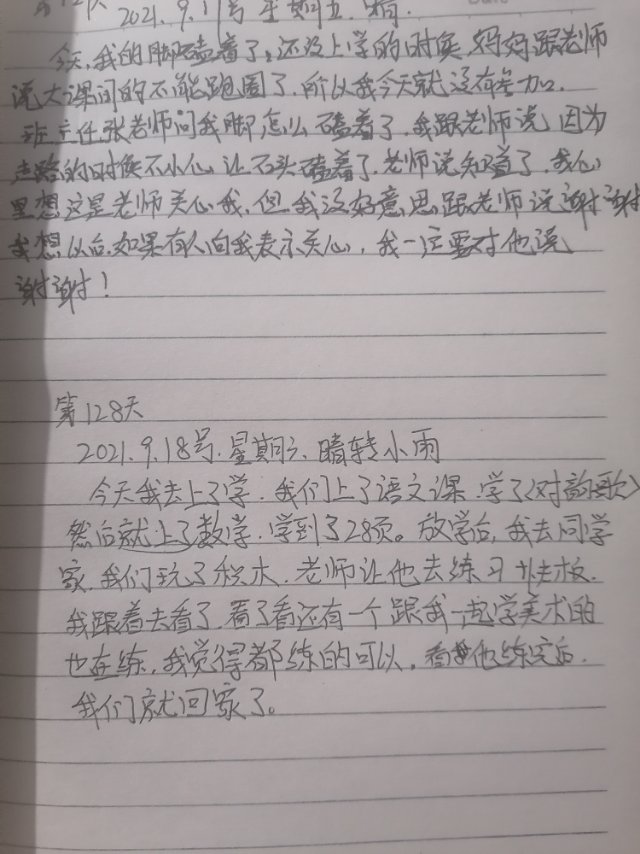 2021.9.17号 星期五.晴.
今天,我的脚磕着了,还没上学的时候 妈妈跟老师
说大课间的不能跑圈了.所以我今天就没有参加.
班主任张老师问我脚怎么磕着了.我跟老师说,因为
走路的时候不小心,让石头磕着了.老师说知道了.我心
里想这是老师关心我,但我没好意思跟老师说谢谢
我想以后.如果有人向我表示关心,我一定要对他说
谢谢!
第128天
2021.9.18号.星期六.晴转小雨
今天我去上了学.我们上了语文课.学了《对韵歌》
然后就上了数学.学到了28页。放学后,我去同学
家,我们玩了积木.老师让他去练习快板.
我跟着去看了.看了看还有一个跟我一起学美术的
也在练,我觉得都练的可以,看他练完后.
我们就回家了。